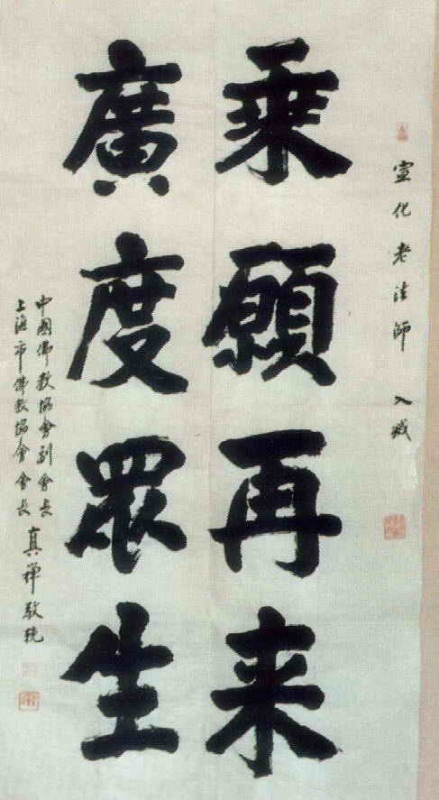 宣化老法師 入滅
乘願再来
廣度眾生
中國佛教協會副會長
上海市佛教協會會長
真禪敬挽